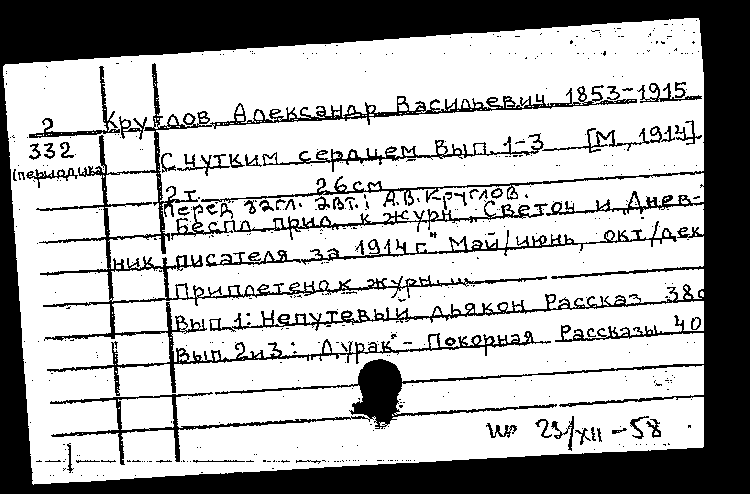 2 Круглов, Александр Васильевич 1853-1915
332
(периодика)
С чутким сердцем Вып. 1-3 [М, 1914]
2 т. 26 см
Перед загл. авт.: А.В. Круглов.
Беспл. прил. к журн. „Светоч и Днев-
ник писателя за 1914 г" Май/июнь, окт/дек
Приплетено к журн. ...
Вып 1: Непутевый дьякон Рассказ 38с
Вып. 2 и 3: „Дурак" - Покорная Рассказы 40
23/XII - 58